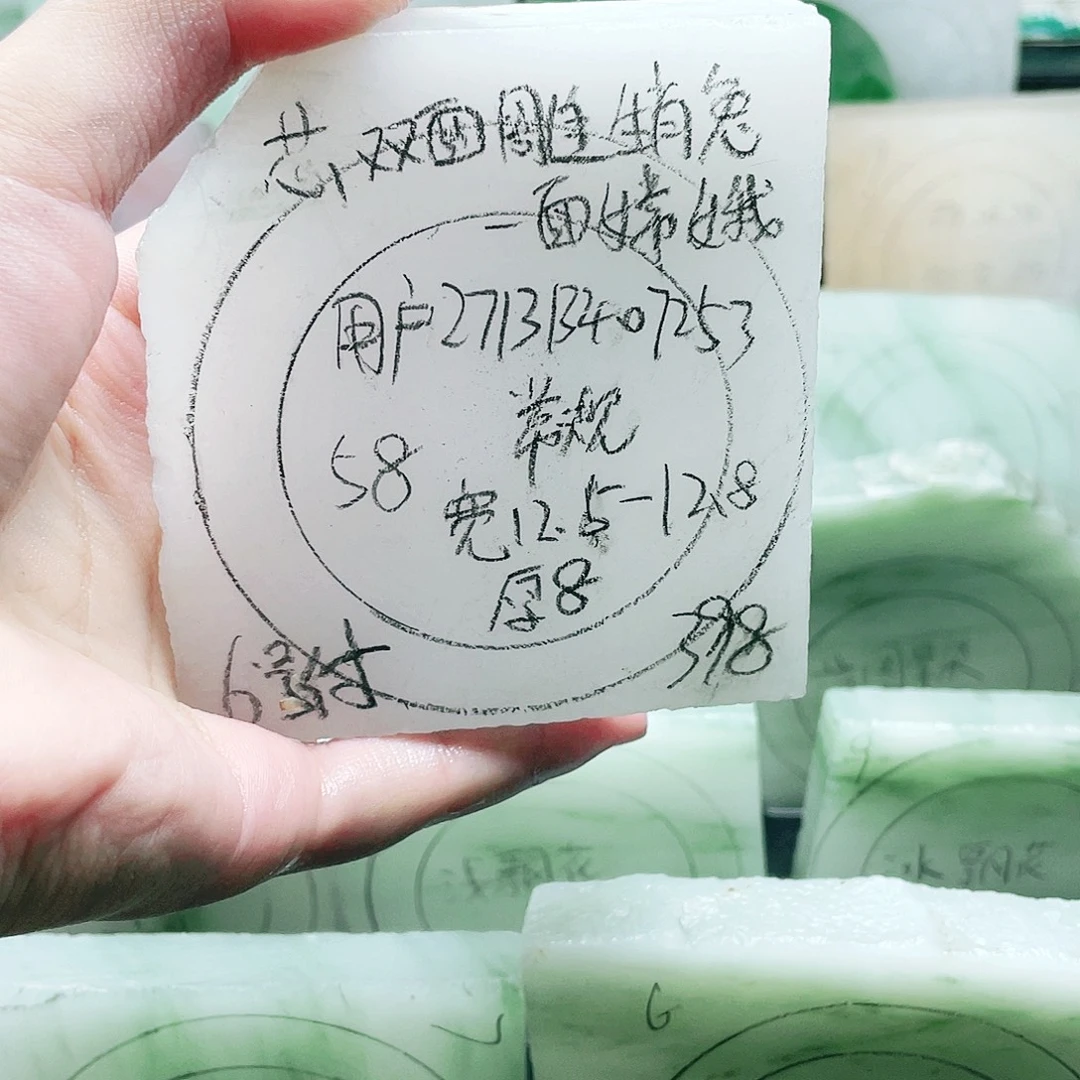 芯双面雕生肖兔
一面嫦娥
用户271313407253
常规
58
宽12.5-12.8
厚8
598
冰飘花
冰飘花
G